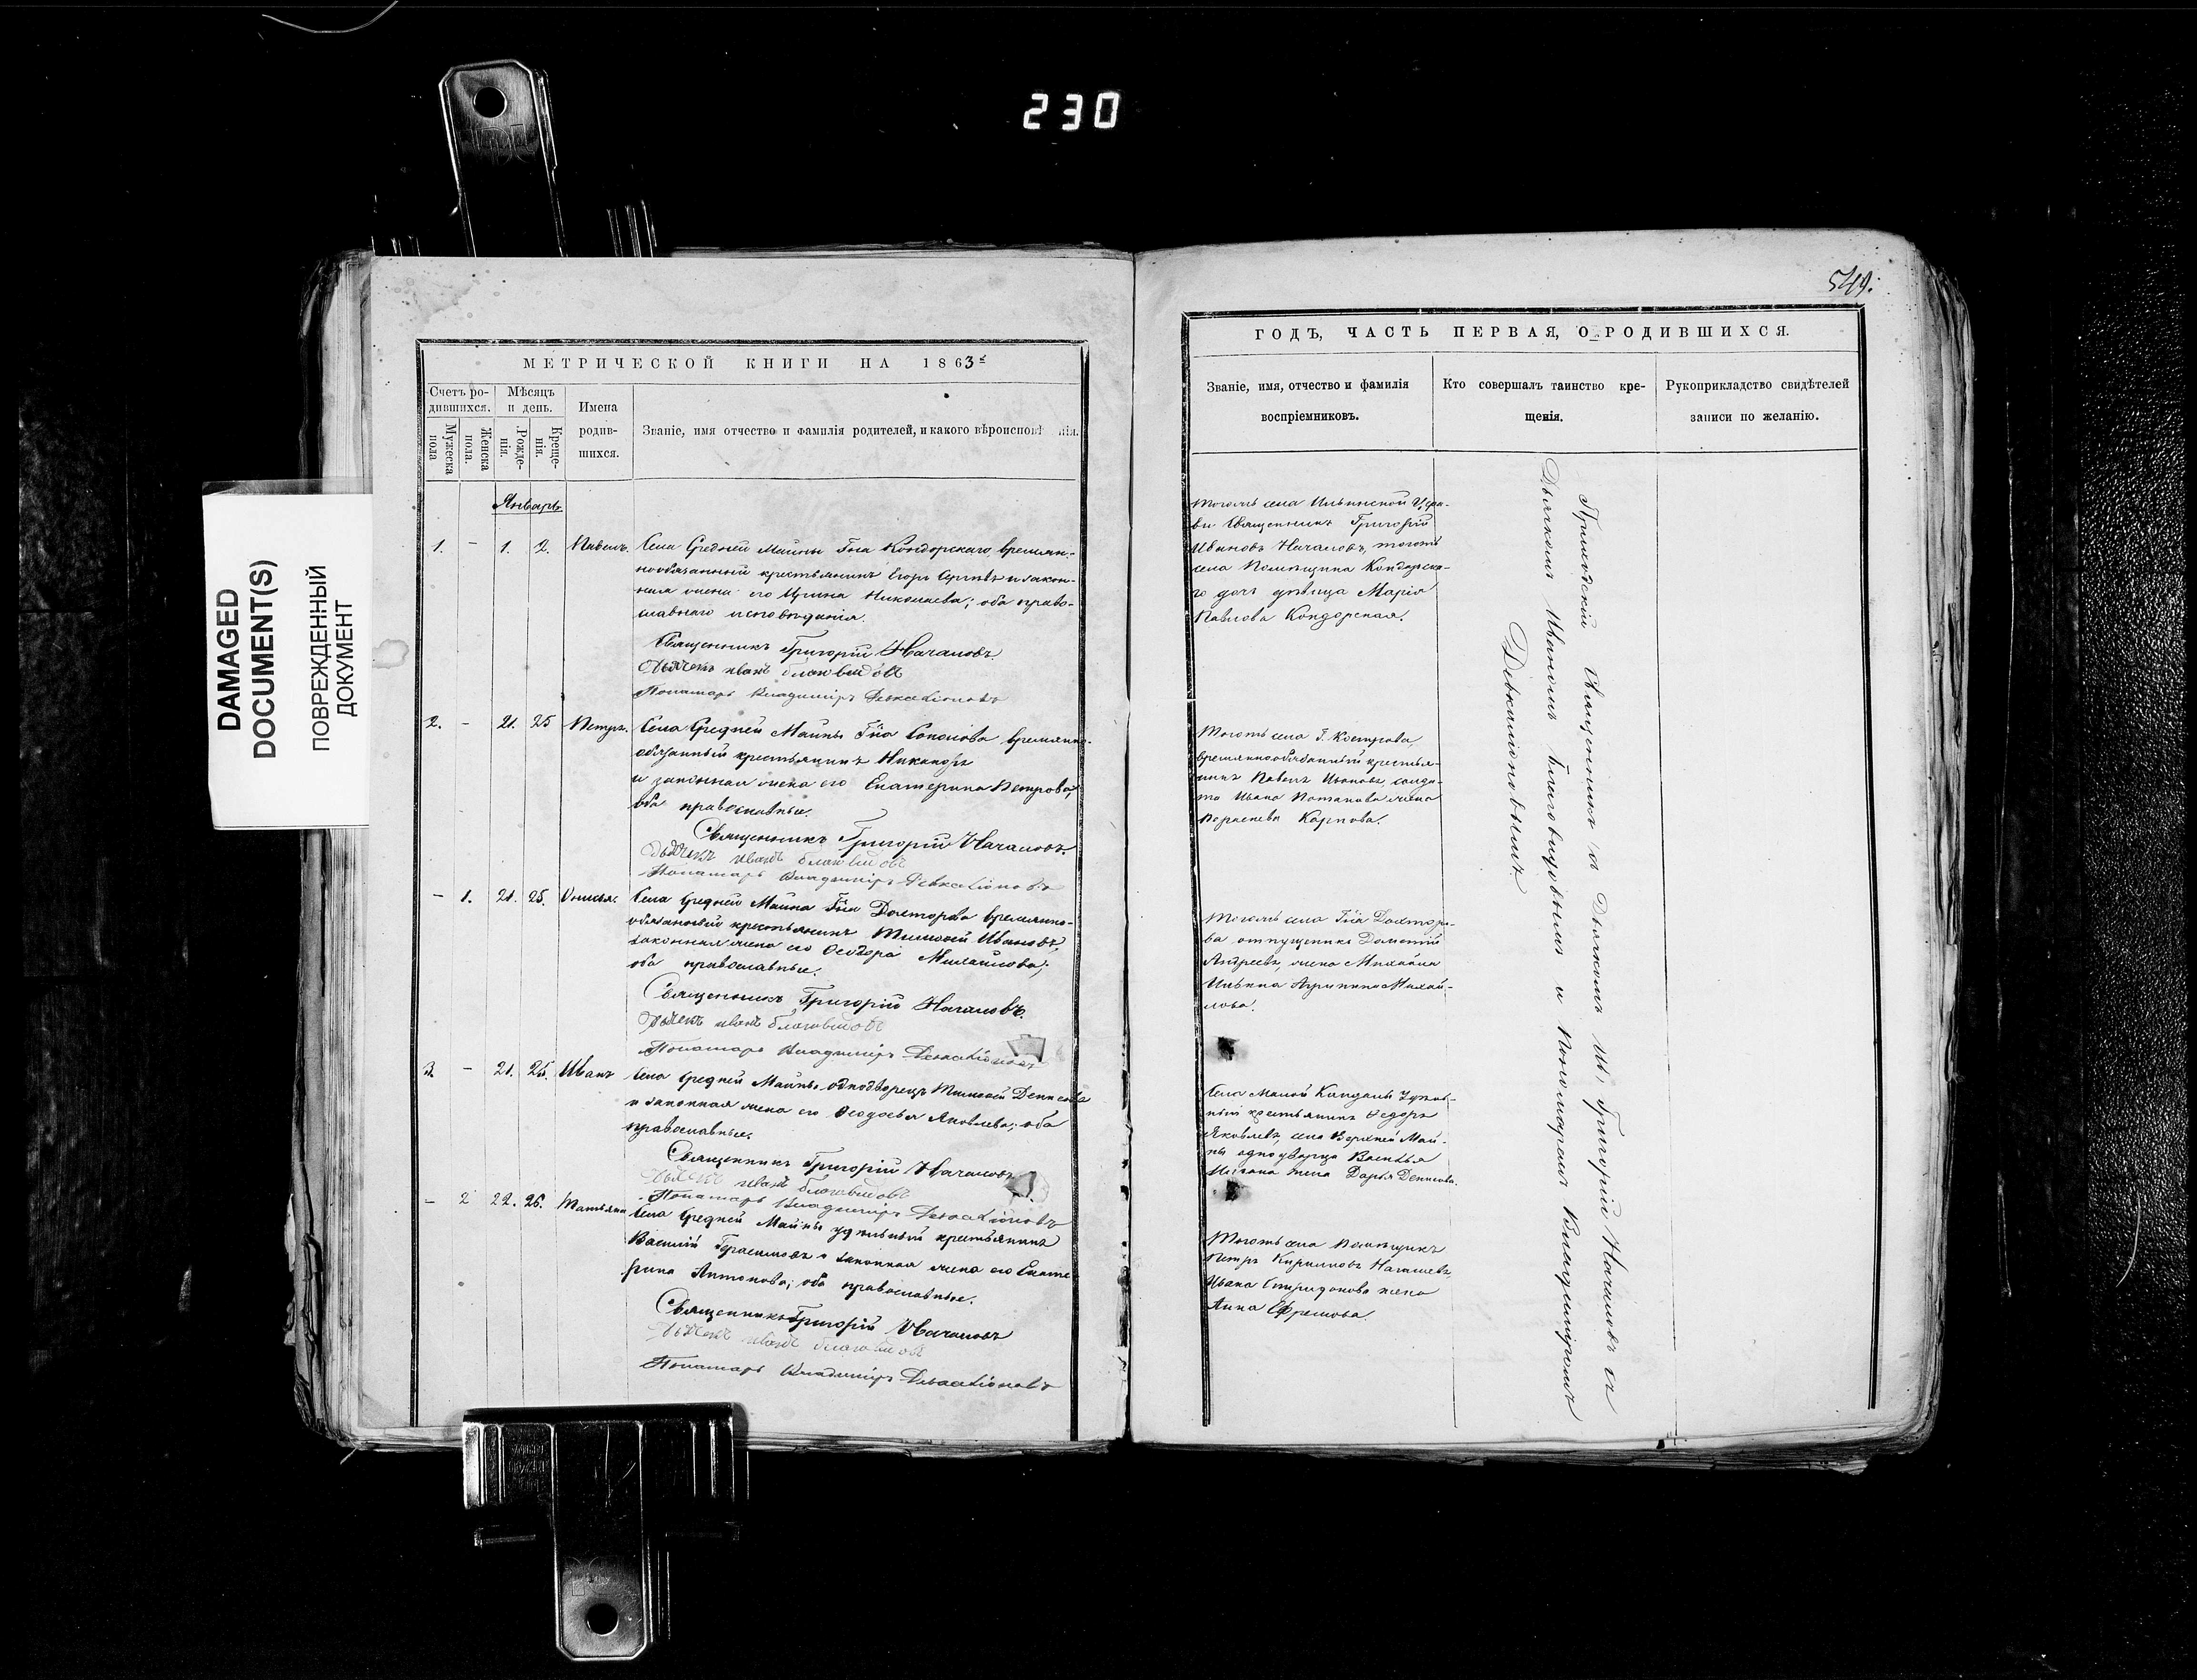 230
DAMAGED
DOCUMENT(S)
ПОВРЕЖДЕННЫЙ
ДОКУМЕНТ
МЕТРИЧЕСКОЙ КНИГИ НА 1863
Счетъ ро-
дившихся.
Мужеска
пола
Женска
пола.
Мѣсяцъ
и день.
Рожде-
нія.
Креще-
нія.
Имена
родив-
шихся.
Званіе, имя отчество и фамилія родителей, и какого вѣроиспов нія.
Январь
1. - 1. 2. Павелъ. Села Средней Майны Гна Кондорскаго, времян-
нообязанный крестьянинъ Егоръ Сергѣевъ и закон-
ная жена его Ирина Николаева; оба право-
славнаго исповѣданія.
Священникъ Григорій Началовъ.
Дьячекъ Иванъ Благовидовъ
Пономарь Владиміръ Девкаліоновъ
2. - 21. 25 Петръ. Села Средней Майны Гна Соколова времянно-
обязанный крестьянинъ Никаноръ
и законная жена его Екатерина Петрова,
оба православные.
Священникъ Григорій Началовъ.
Дьячекъ Иванъ Благовидовъ
Пономарь Владиміръ Девкаліоновъ
- 1. 21. 25. Села Средней Майны Гна Докторова времянно-
обязанный крестьянинъ Тимофей Ивановъ,
законная жена его Ѳеодора Михайлова;
оба православные.
Священникъ Григорій Началовъ.
Дьячекъ Иванъ Благовидовъ
Пономарь Владиміръ Девкаліоновъ
3. - 21. 25. Иванъ Села Средней Майны однодворецъ Тимофей Денисовъ
и законная жена его Ѳеодосья Яковлева; оба
православные.
Священникъ Григорій Началовъ
Дьячекъ Иванъ Благовидовъ
Пономарь Владиміръ Девкаліоновъ
- 2 22. 25. Татьяна Села Средней Майны удѣльный крестьянинъ
Василій Герасимовъ и законная жена его Екате-
рина Антонова; оба православные.
Священникъ Григорій Началовъ
Дьячекъ Иванъ Благовидовъ
Пономарь Владиміръ Девкаліоновъ
549.
ГОДЪ, ЧАСТЬ ПЕРВАЯ, О РОДИВШИХСЯ.
Званіе, имя, отчество и фамилія
воспріемниковъ.
Кто совершалъ таинство кре-
щенія.
Рукоприкладство свидѣтелей
записи по желанію.
тогожъ села Ильинской Церк-
ви Священникъ Григорій
Ивановъ Началовъ, тогожъ
села Помѣщика Кондорска-
го дочь дѣвица Марія
Павлова Кондорская.
Тогожъ села Г.
времяннообязанный крестья-
нинъ Павелъ Ивановъ, солда-
та Ивана Потапова жена
Карпова.
Тогожъ села Гна Докторо-
ва отпущеникъ
Андреевъ, жена Михаила
Ильина Агрипина Михай-
лова.
Села Малой Кандалы Удѣль-
ный крестьянинъ Ѳедоръ
Яковлевъ, села Верхней Май-
ны однодворца Василья
жена Дарья Денисова.
Тогожъ села Помѣщикъ
Петръ Кириловъ
Ивана Спиридонова жена
Анна Ефремова.
Приходскій Священникъ съ Дьякономъ Григорій Началовъ съ
Дьячкомъ Иваномъ Благовидовымъ и Пономаремъ Владиміромъ
Девкаліоновымъ.